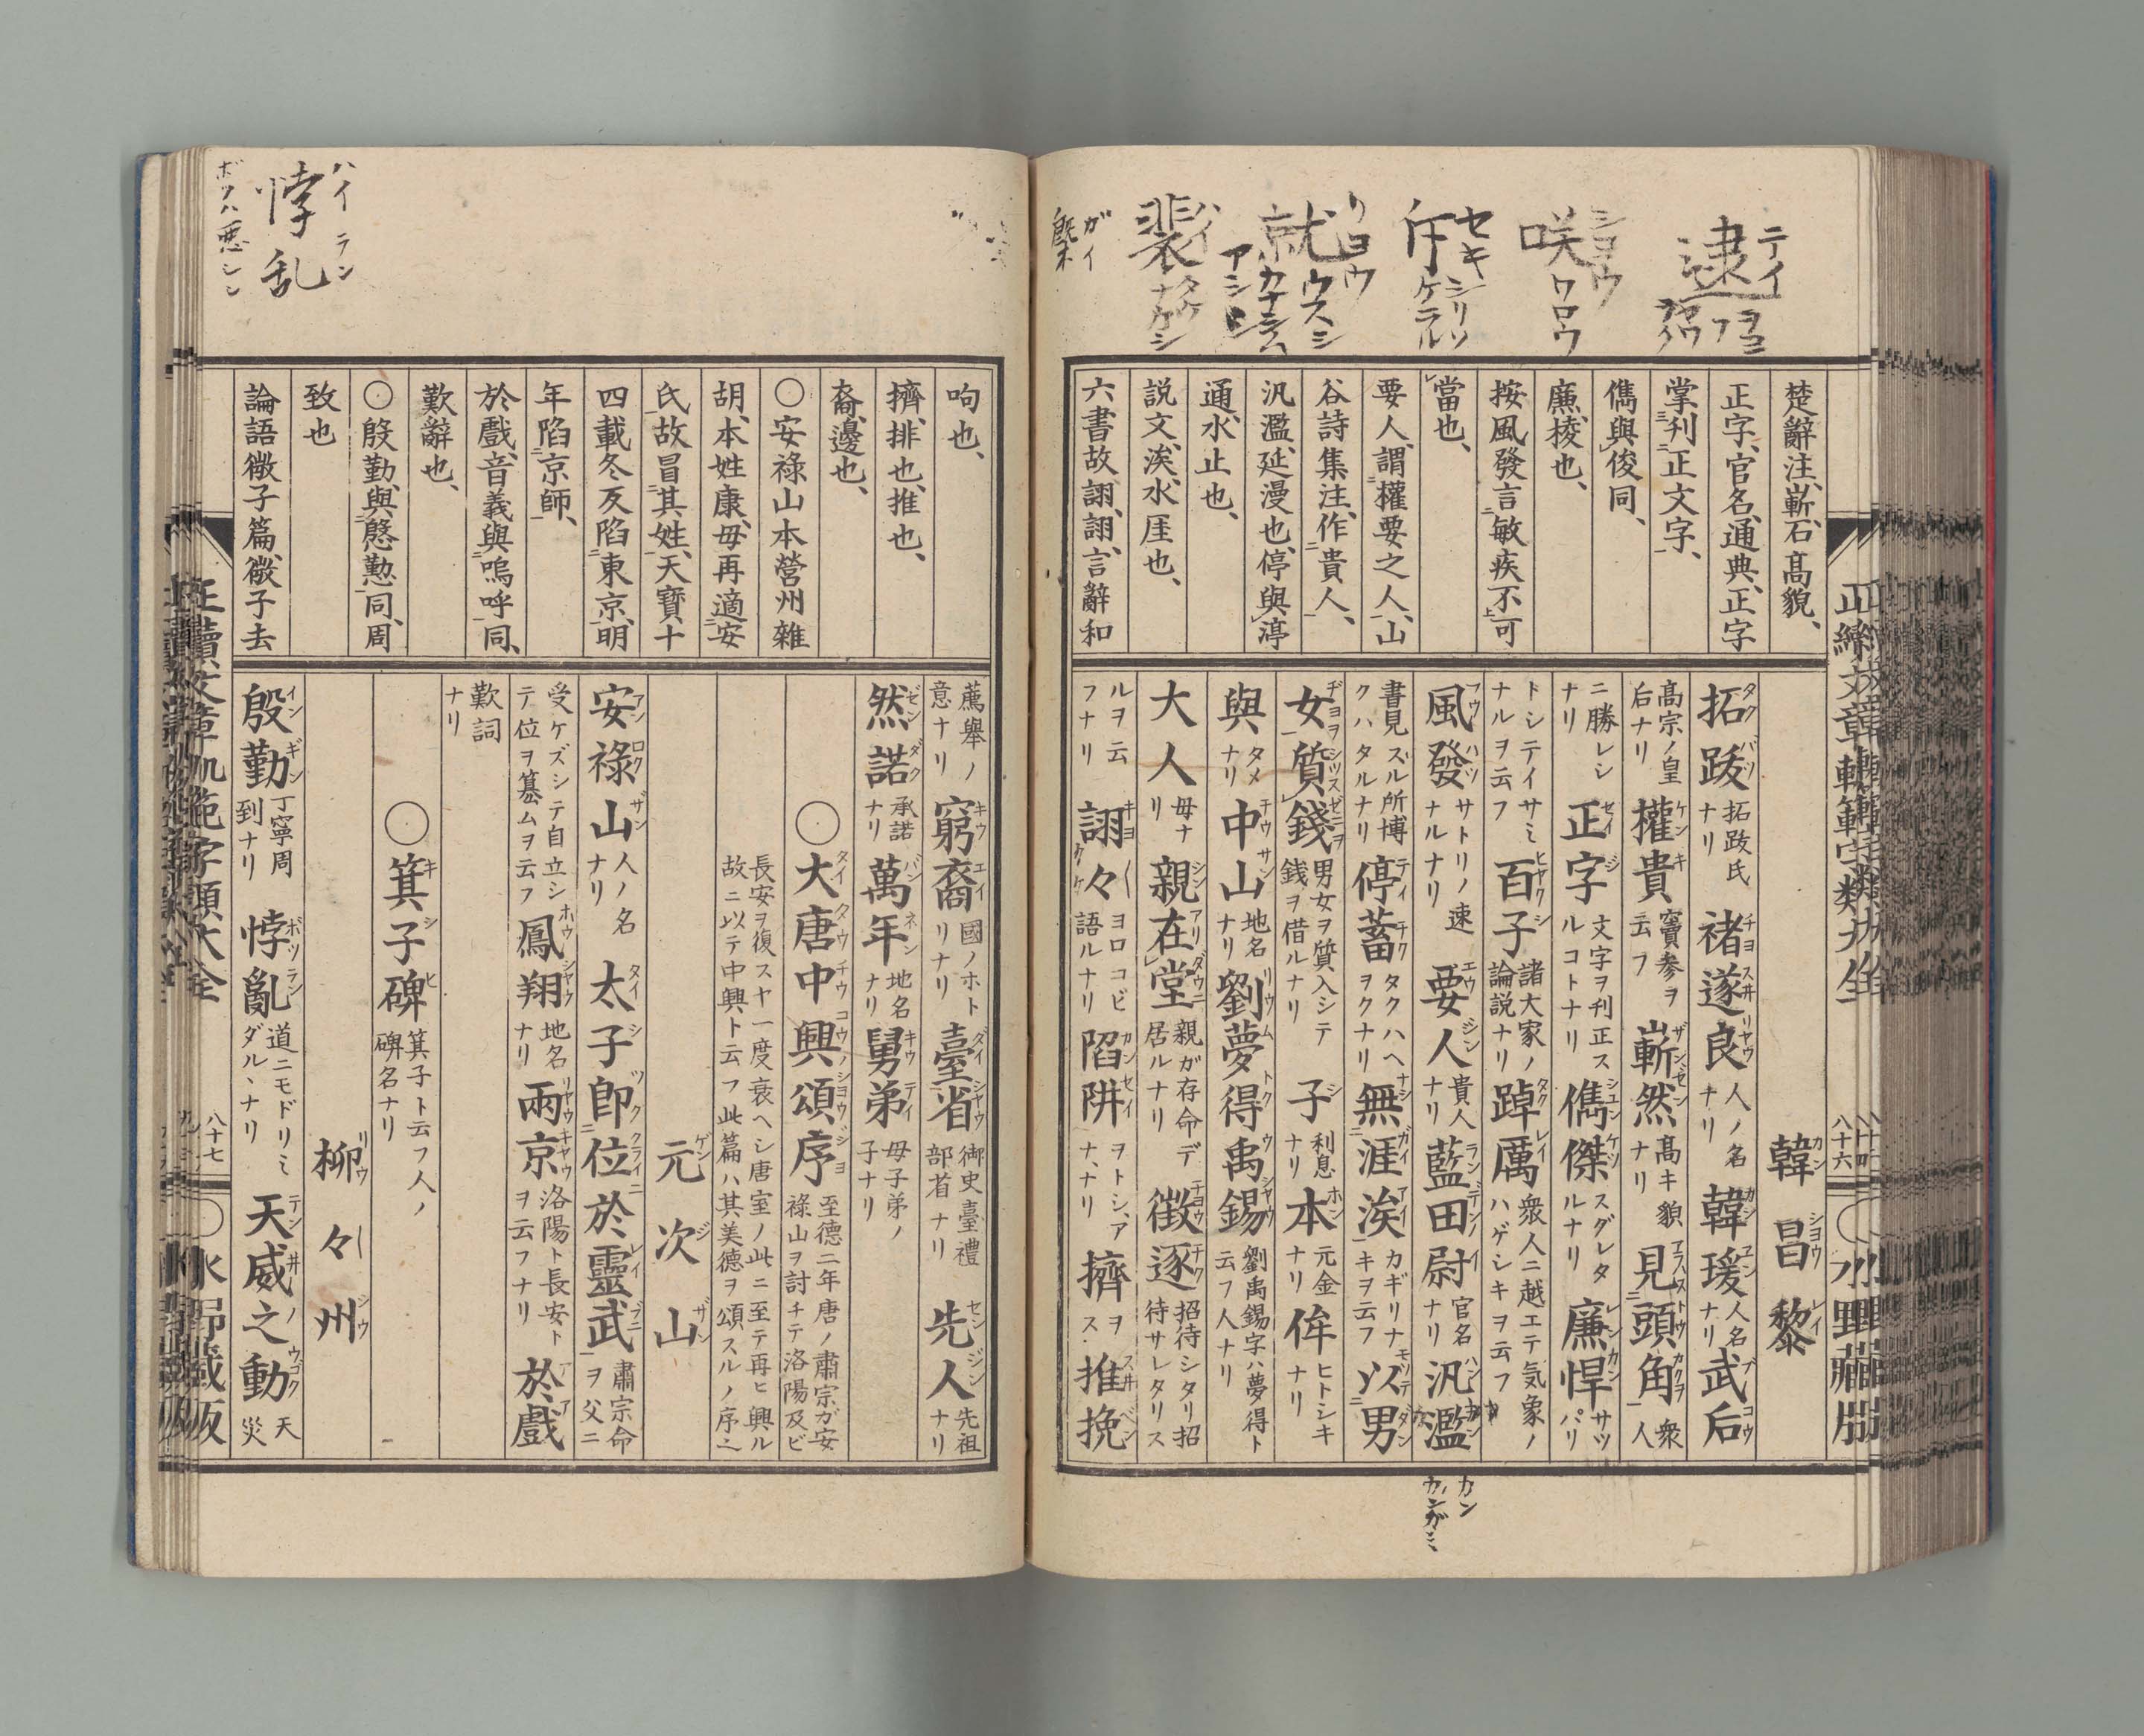 逮
テイ
ヲヨ
咲
シヨウ
ワロウ
斥
セキ
シリソ
ケラル
就
リヨウ
ウスシ
カナシム
裴
ハイ
ガイ
楚辭注、嶄、石高貌、
正字、官名、通典、正字
掌刊正文字、
儁與俊同、
廉、稜也、
按風發言敏疾不可
當也、
要人、謂權要之人、山
谷詩集注、作貴人、
汎濫、延漫也、停與渟
通、水止也、
説文、涘、水厓也、
六書故、詡詡、言辭和
韓昌黎
カンシヨウレイ
拓跋 拓跋氏ナリ 褚遂良 人ノ名ナリ 韓瑗 人名ナリ 武后
高宗ノ皇后ナリ 權貴 竇參ヲ云フ 嶄然 高キ貌ナリ 見頭角 衆人
ニ勝レシナリ 正字 文字ヲ刊正スルコトナリ 儁傑 スグレタルナリ 廉悍 サツパリ
トシテイサミナルヲ云フ 百子 諸大家ノ論説ナリ 踔厲 衆人ニ越エテ気象ノハゲシキヲ云フ
風發 サトリノ速ナルナリ 要人 貴人ナリ 藍田尉 官名ナリ 汎濫
書見スル所博クハタルナリ 停蓄 タクハヘヲクナリ 無涯涘 カギリナキヲ云フ 以男
女質錢 男女ヲ質入シテ銭ヲ借ルナリ 子 利息ナリ 本 元金ナリ 侔 ヒトシキナリ
與 タメナリ 中山 地名ナリ 劉夢得禹錫 劉禹錫字ハ夢得ト云フ人ナリ
大人 母ナリ 親在堂 親ガ存命デ居ルナリ 徴逐 招待シタリ招待サレタリス
ルヲ云フナリ 詡々 ヨロコビ語ルナリ 陷阱 ヲトシアナヽリ 擠 ヲス 推挽
正續文章軌範字類大全
八十六
水野藏版
カン
カンガミ
悖乱
ハイラン
ボツハ悪シシ
呴也、
擠、排也、推也、
裔、邊也、
○安祿山本營州雜
胡、本姓康、母再適安
氏、故冒其姓、天寶十
四載冬反陷東京、明
年陷京師、
於戲、音義與嗚呼同、
歎辭也、
○殷勤、與慇懃同、周
致也
論語微子篇、微子去
薦舉ノ意ナリ 窮裔 國ノホトリナリ 臺省 御史臺禮部省ナリ 先人 先祖ナリ
然諾 承諾ナリ 萬年 地名ナリ 舅弟 母子弟ノ子ナリ
○大唐中興頌序 至德二年唐ノ肅宗ガ安祿山ヲ討チテ洛陽及ビ
長安ヲ復スヤ一度衰ヘシ唐室ノ此ニ至テ再ヒ興ル故ニ以テ中興ト云フ此篇ハ其美德ヲ頌スルノ序也
元次山
ゲンジザン
安祿山 人ノ名ナリ 太子即位於靈武 肅宗命ヲ父ニ
受ケズシテ自立シテ位ヲ簒ムヲ云フ 鳳翔 地名ナリ 兩京 洛陽ト長安トヲ云フナリ 於戲
歎詞ナリ
○箕子碑 箕子ト云フ人ノ碑名ナリ
柳々州
殷勤 丁寧周到ナリ 悖亂 道ニモドリミダルヽナリ 天威之動 天災
正續文章軌範字類大全
八十七
水野藏版